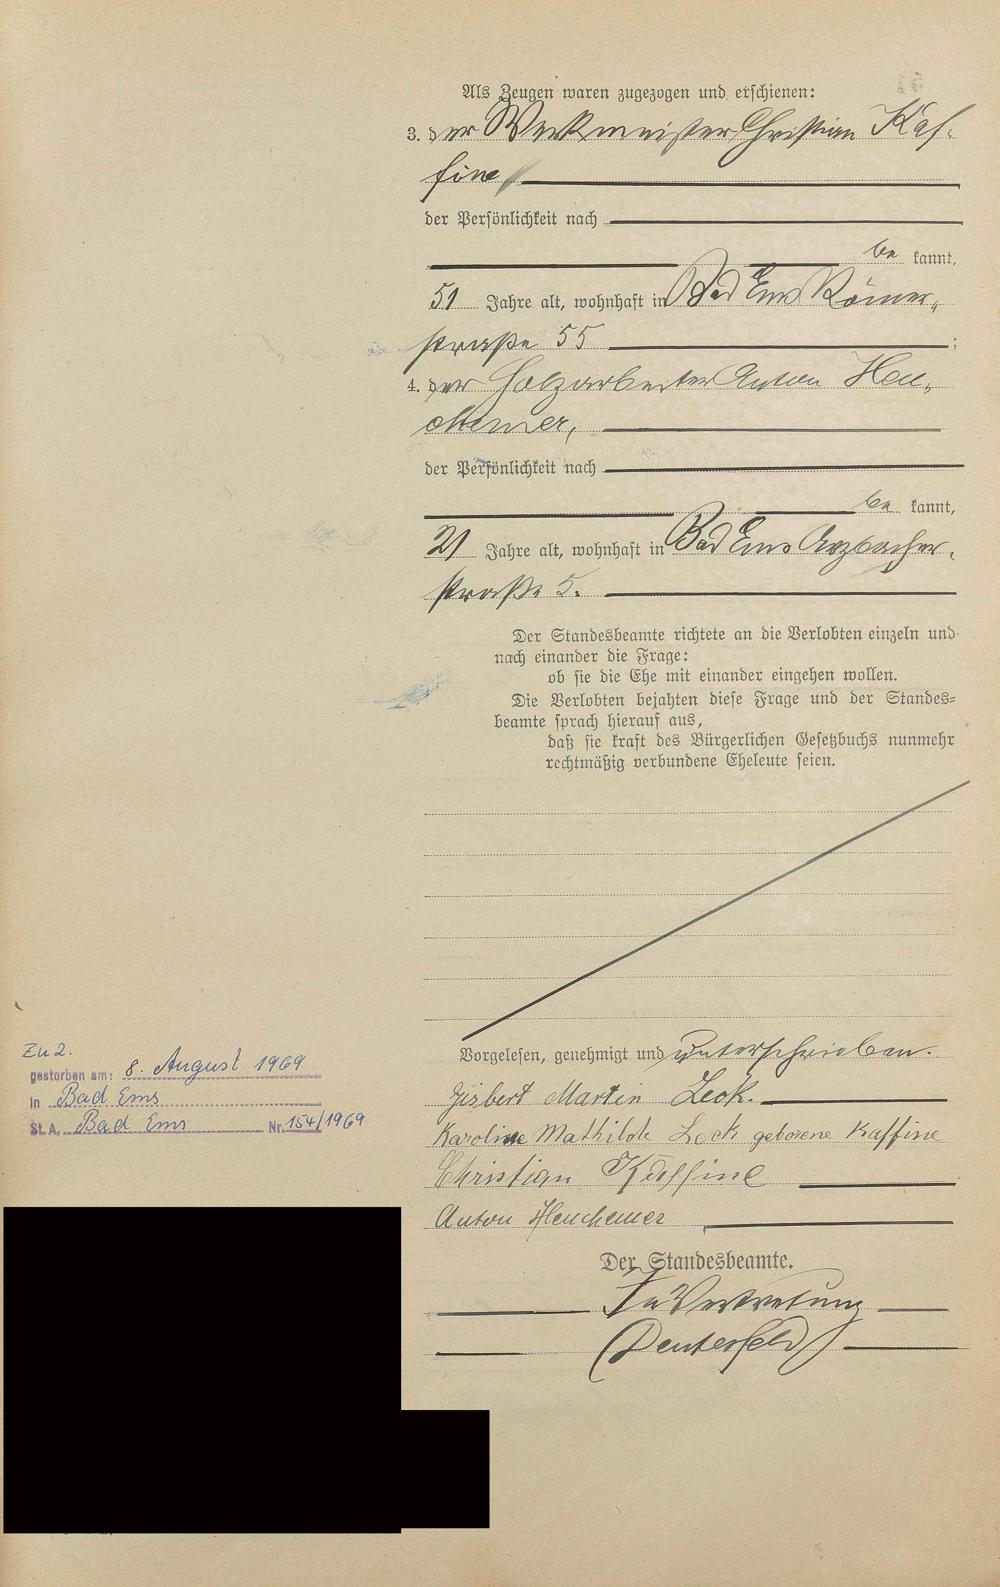 Als Zeugen waren zugezogen und erschienen:
3. der Werkmeister Christian Kaf-
fine,
der Persönlichkeit nach
be kannt,
51 Jahre alt, wohnhaft in Bad Ems Römer-
straße 55 ;
4. der Holzarbeiter Anton Heu-
chemer,
der Persönlichkeit nach
be kannt,
21 Jahre alt, wohnhaft in Bad Ems Arzbacher-
straße 5.
Der Standesbeamte richtete an die Verlobten einzeln und
nach einander die Frage:
ob sie die Ehe mit einander eingehen wollen.
Die Verlobten bejahten diese Frage und der Standes-
beamte sprach hierauf aus,
daß sie kraft des Bürgerlichen Gesetzbuchs nunmehr
rechtmäßig verbundene Eheleute seien.
Vorgelesen, genehmigt und unterschrieben.
Gisbert Martin Leck.
Karoline Mathilde Leck geborene Kaffine
Christian Kaffine
Anton Heuchemer
Der Standesbeamte.
In Vertretung
Zu 2.
gestorben am: 8. August 1969
in Bad Ems
St. A. Bad Ems Nr. 154/1969